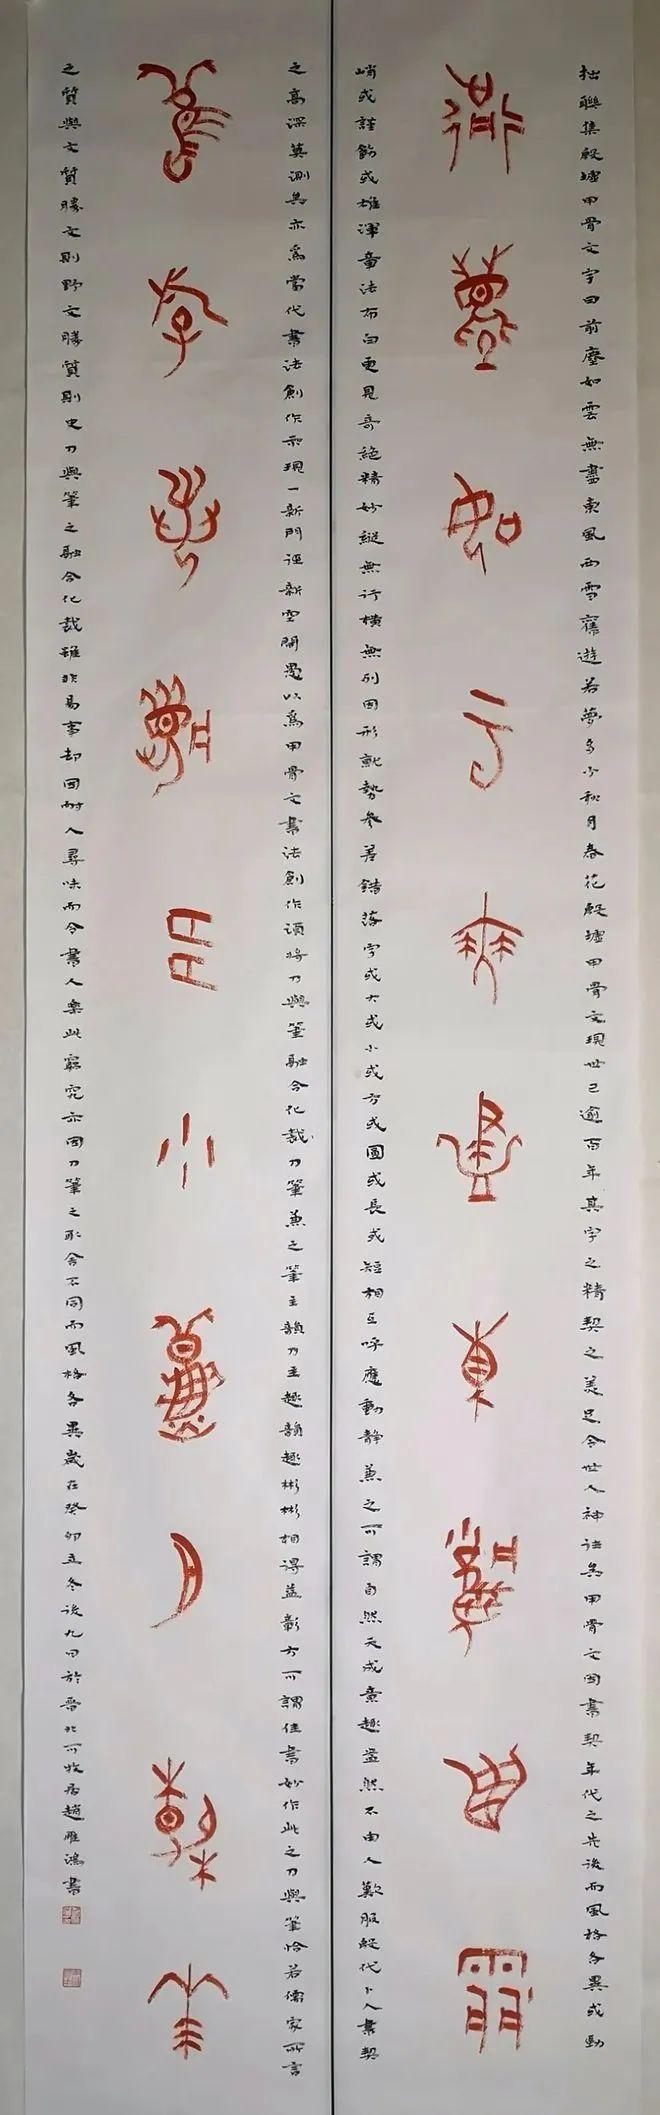 拙聯集殷墟甲骨文字曰前塵如雲無盡東風西雪舊遊若夢多少秋月春花殷墟甲骨文現世已逾百年其字之精契之美足令世人神往為甲骨文因書契年代之先後而風格各異或勁
前塵如雲無盡東風西雪
峭或謹飭或雄渾章法布白更見奇絕精妙縱無行橫無列因形就勢參差錯落字或大或小或方或圓或長或短相互呼應動靜兼之可謂自然天成意趣盎然不由人歎服殷代卜人書契
之高深莫測為亦為當代書法創作示現一新門徑新空間愚以為甲骨文書法創作須將刀與筆融合化裁刀筆兼之筆主韻刀主趣韻趣彬彬相得益彰方可謂佳書妙作此之刀與筆恰若儒家所言
舊遊若夢多少秋月春花
之質與文質勝文則野文勝質則史刀與筆之融合化裁雖非易事却因耐人尋味而令書人樂此窮究亦因刀筆之取舍不同而風格各異歲在癸卯立冬後九日於晉北可牧居趙雁鴻書